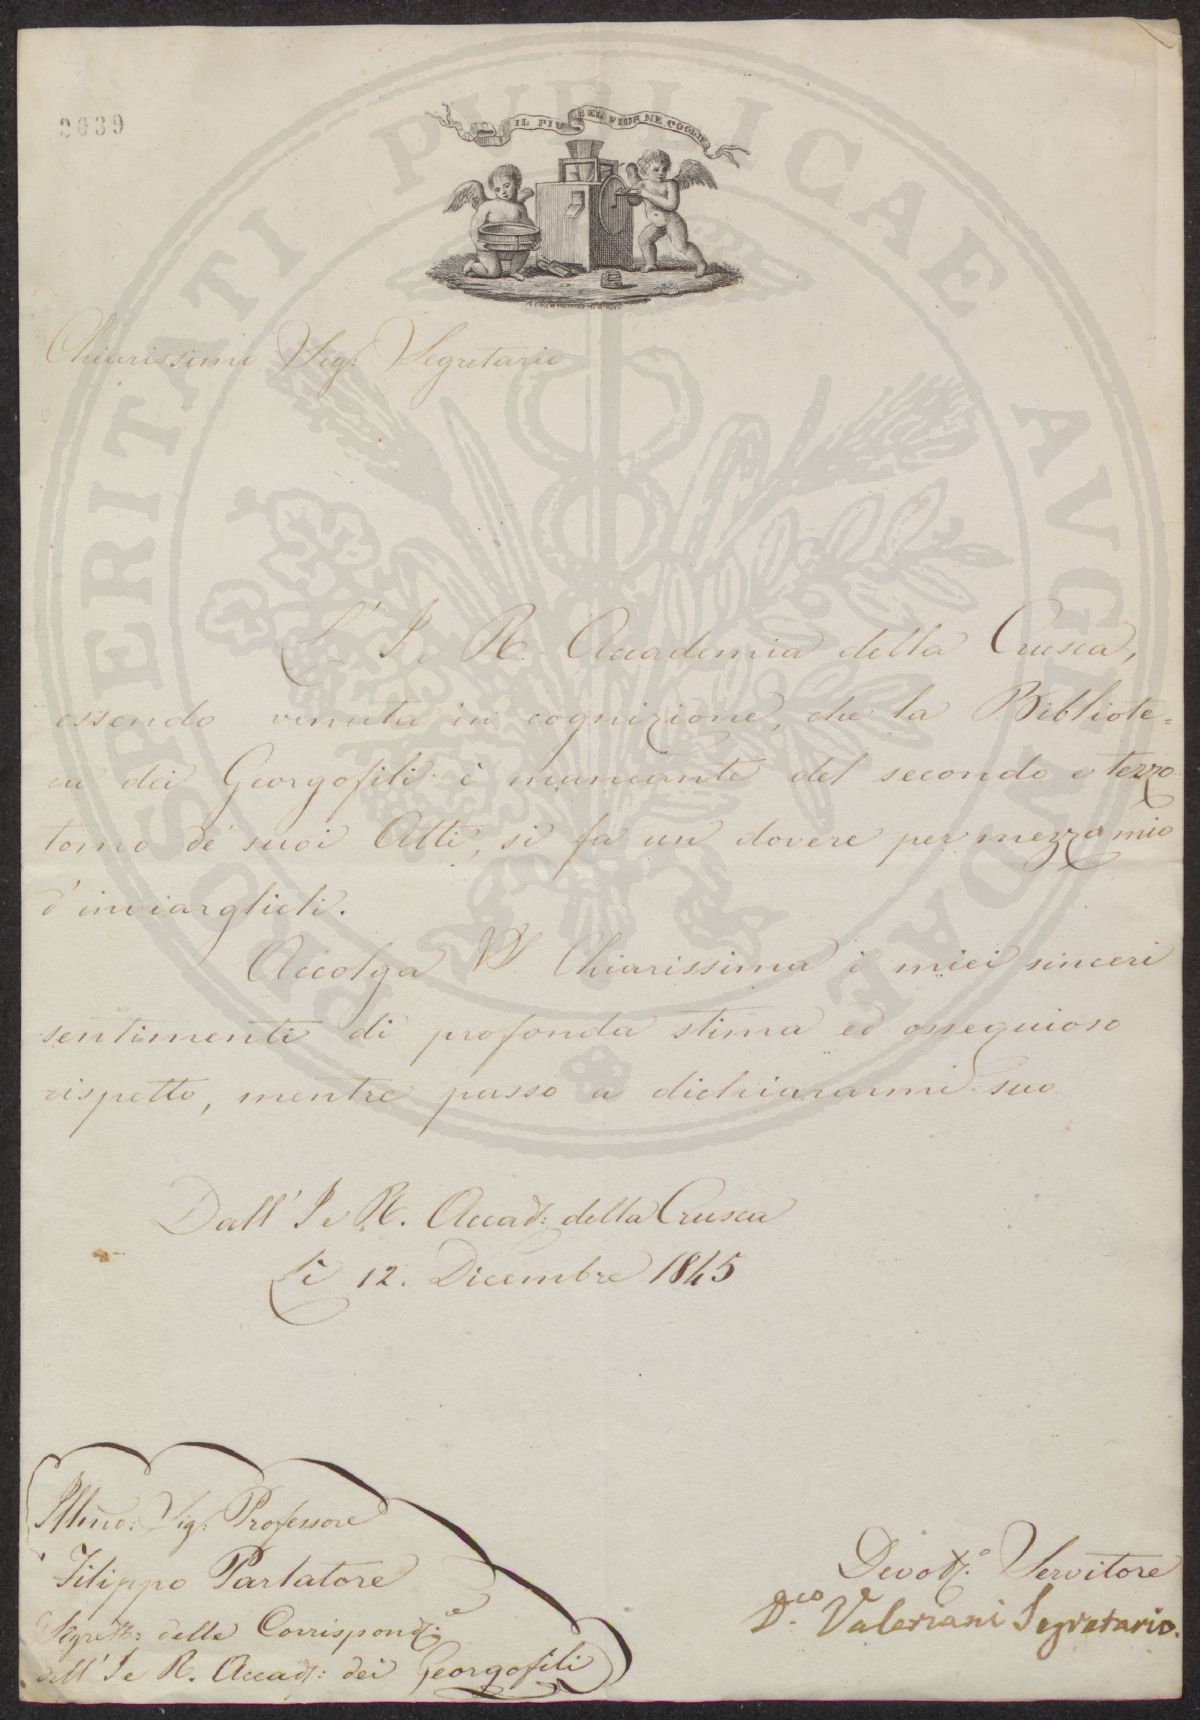 2039
IL PIU BEL FIOR NE COGLIE
PROSPERITATI PVBLICAE AVGENDAE
Chiarissimo Sig: Segretario
L' I e R. Accademia della Crusca,
essendo venuta in cognizione, che la Bibliote=
ca dei Georgofili è mancante del secondo e terzo
tomo de' suoi Atti, si fa un dovere per mezzo mio
d'inviarglieli.
Accolga VS Chiarissima i miei sinceri
sentimenti di profonda stima ed ossequioso
rispetto, mentre passo a dichiararmi suo
Dall' I e R. Accad: della Crusca
Lì 12. Dicembre 1845
Illmo: Sig: Professore
Filippo Parlatore
Segret: delle Corrispond:e
dell' I e R. Accad: dei Georgofili
Devot:o Servitore
D.co Valeriani Segretario.